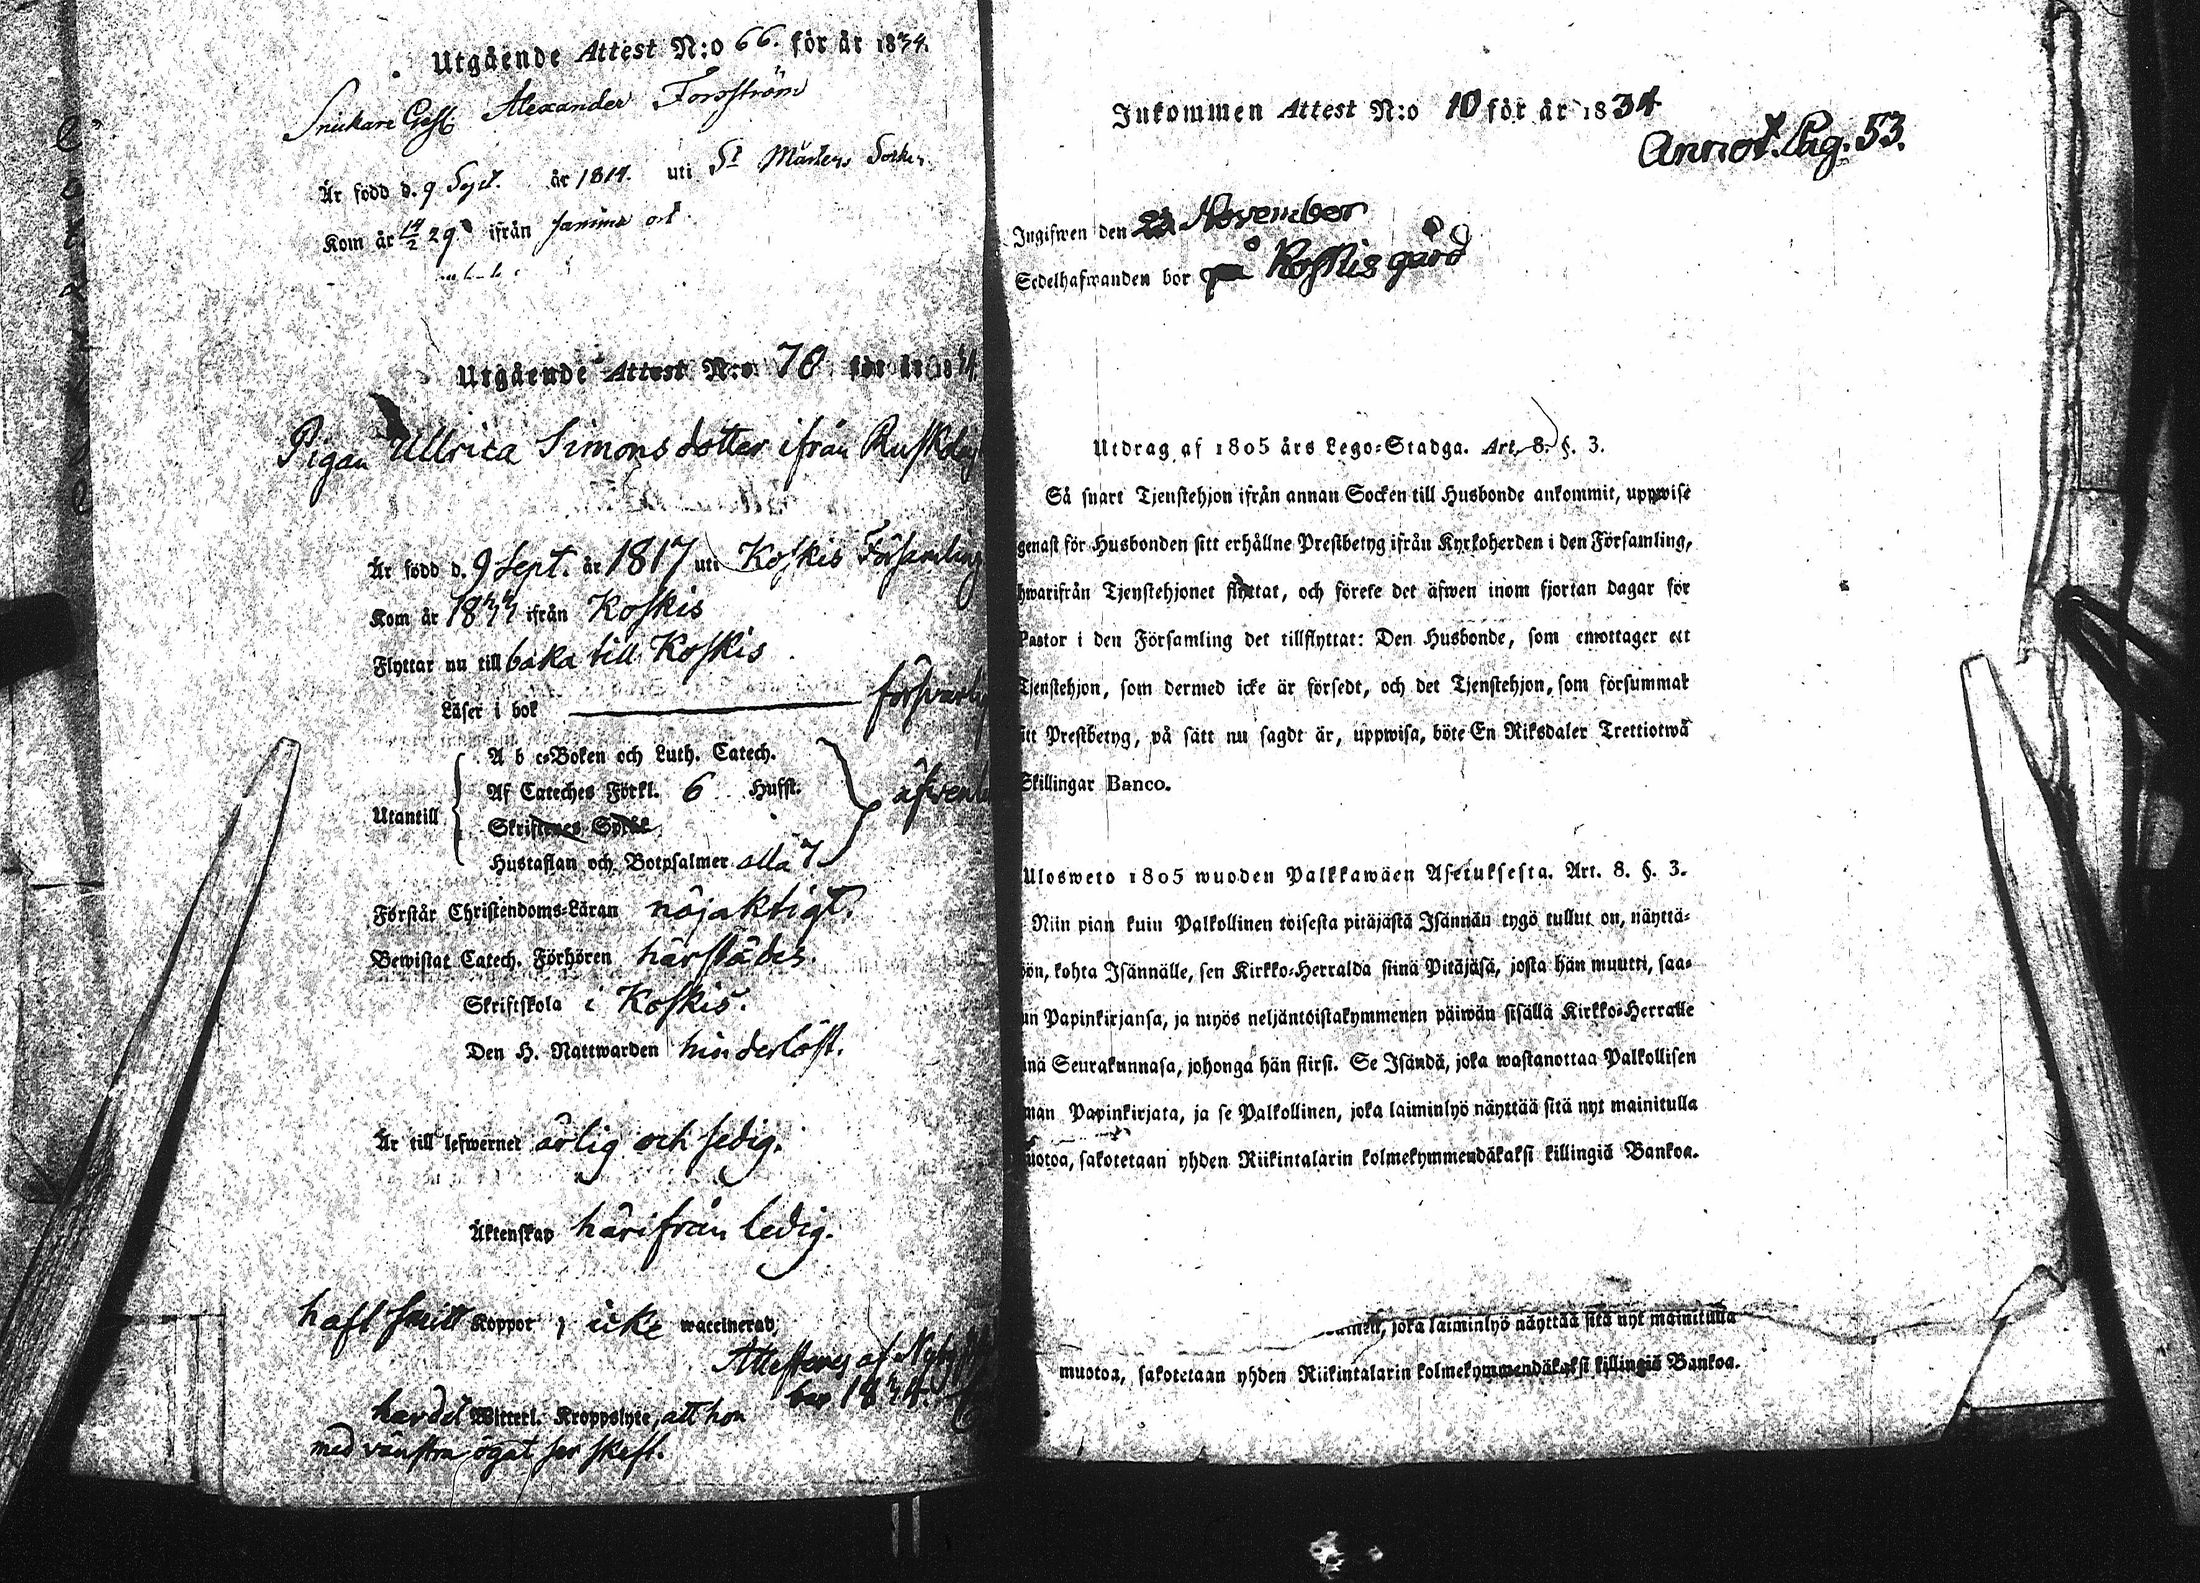 Utgående Attest N:o 66. för år 1834.
Snickare Gesll Alexander Forsström
Är född d. 9 Sept. år 1814. uti St Mårtens Socken
Kom år 14/2 29 ifrån samma ort
Utgående Attest N:o 78 för år 1834.
Pigan Ullrica Simonsdotter ifrån
Är född d. 9 Sept. år 1817 uti Koskis Församling
Kom år 1833 ifrån Koskis
Flyttar nu till baka till Koskis
Läser i bok försvarlig
A b c-Boken och Luth. Catech.
Af Cateches Förkl. 6 Hufst.
Utantill
Skriftenes Språk
Hustaflan och Botpsalmer alla 7
Förstår Christendoms-Läran nöjaktigt.
Bewistat Catech. Förhören härstädes.
Skriftskola i Koskis.
Den H. Nattwarden hinderlöst.
Är till lefwernet ärlig och sedig.
Äktenskap härifrån ledig.
haft Koppor, icke waccinerad,
Attesteras af
ber 1834.
har det Witterl. Kroppslyte, att hon
med vänstra ögat ser skeft.
Inkommen Attest N:o 10 för år 1834
Annot. Pag. 53.
Ingifwen den 23 November
Sedelhafwanden bor på Koskis gård
Utdrag af 1805 års Lego-Stadga. Art. 8. §. 3.
Så snart Tjenstehjon ifrån annan Socken till Husbonde ankommit, uppwise
genast för Husbonden sitt erhållne Prestbetyg ifrån Kyrkoherden i den Församling,
hwarifrån Tjenstehjonet flyttat, och förete det äfwen inom fjortan dagar för
Pastor i den Församling det tillflyttat: Den Husbonde, som emottager ett
Tjenstehjon, som dermed icke är försedt, och det Tjenstehjon, som försummar
sitt Prestbetyg, på sätt nu sagdt är, uppwisa, böte En Riksdaler Trettiotwå
Skillingar Banco.
Ulosweto 1805 wuoden Palkkawäen Asetuksesta. Art. 8. §. 3.
Niin pian kuin Palkollinen toisesta pitäjästä Isännän tygö tullut on, näyttä-
kön, kohta Isännälle, sen Kirkko-Herralda siinä Pitäjäsä, josta hän muutti, saa-
un Papinkirjansa, ja myös neljäntoistakymmenen päiwän sisällä Kirkko-Herralle
inä Seurakunnasa, johonga hän siirsi. Se Isändä, joka wastanottaa Palkollisen
man Papinkirjata, ja se Palkollinen, joka laiminlyö näyttää sitä nyt mainitulla
muotoa, sakotetaan yhden Riikintalarin kolmekymmendäkaksi killingiä Bankoa.
joka laiminlyö näyttää sitä nyt mainitulla
muotoa, sakotetaan yhden Riikintalarin kolmekymmendäkaksi killingiä Bankoa.